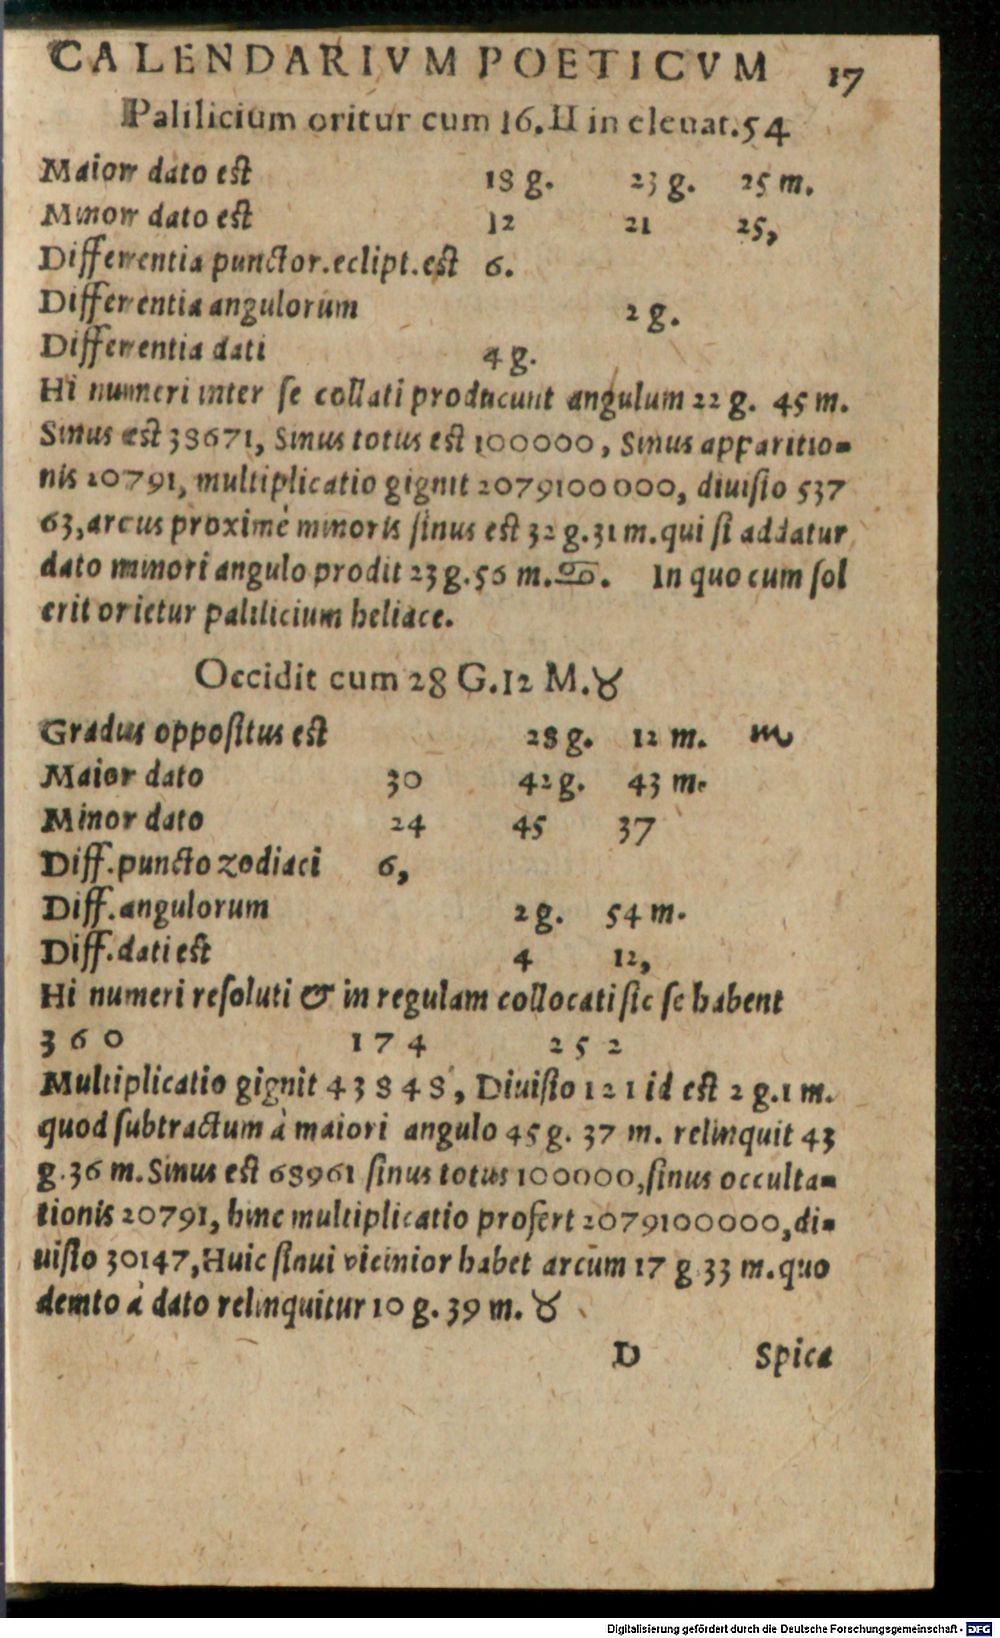 CALENDARIVM POETICVM 17
Palilicium oritur cum 16. II in eleuat. 54
Maiorr dato est 18 g. 23 g. 25 m.
Minorr dato est 12 21 25,
Differrentia punctor. eclipt. est 6.
Differrentia angulorum 2 g.
Differrentia dati 4 g.
Hi numeri inter se collati producunt angulum 22 g. 45 m.
Sinus est 38671, Sinus totus est 100000, Sinus apparitio-
nis 20791, multiplicatio gignit 2079100000, diuisio 537
63, arcus proximè minoris sinus est 32 g. 31 m. qui si addatur
dato minori angulo prodit 23 g. 56 m. ♋. In quo cum sol
erit orietur palilicium heliace.
Occidit cum 28 G. 12 M. ♉
Gradus oppositus est 28 g. 12 m. ♏
Maior dato 30 42 g. 43 m.
Minor dato 24 45 37
Diff. puncto zodiaci 6,
Diff. angulorum 2 g. 54 m.
Diff. dati est 4 12,
Hi numeri resoluti & in regulam collocati sic se habent
3 6 0 1 7 4 2 5 2
Multiplicatio gignit 4 3 8 4 8, Diuisio 1 2 1 id est 2 g. 1 m.
quod subtractum à maiori angulo 45 g. 37 m. relinquit 43
g. 36 m. Sinus est 68961 sinus totus 100000, sinus occulta-
tionis 20791, hinc multiplicatio profert 2079100000, di-
uisio 30147, Huic sinui vicinior habet arcum 17 g 33 m. quo
demto à dato relinquitur 10 g. 39 m. ♉
D Spica
Digitalisierung gefördert durch die Deutsche Forschungsgemeinschaft - DFG